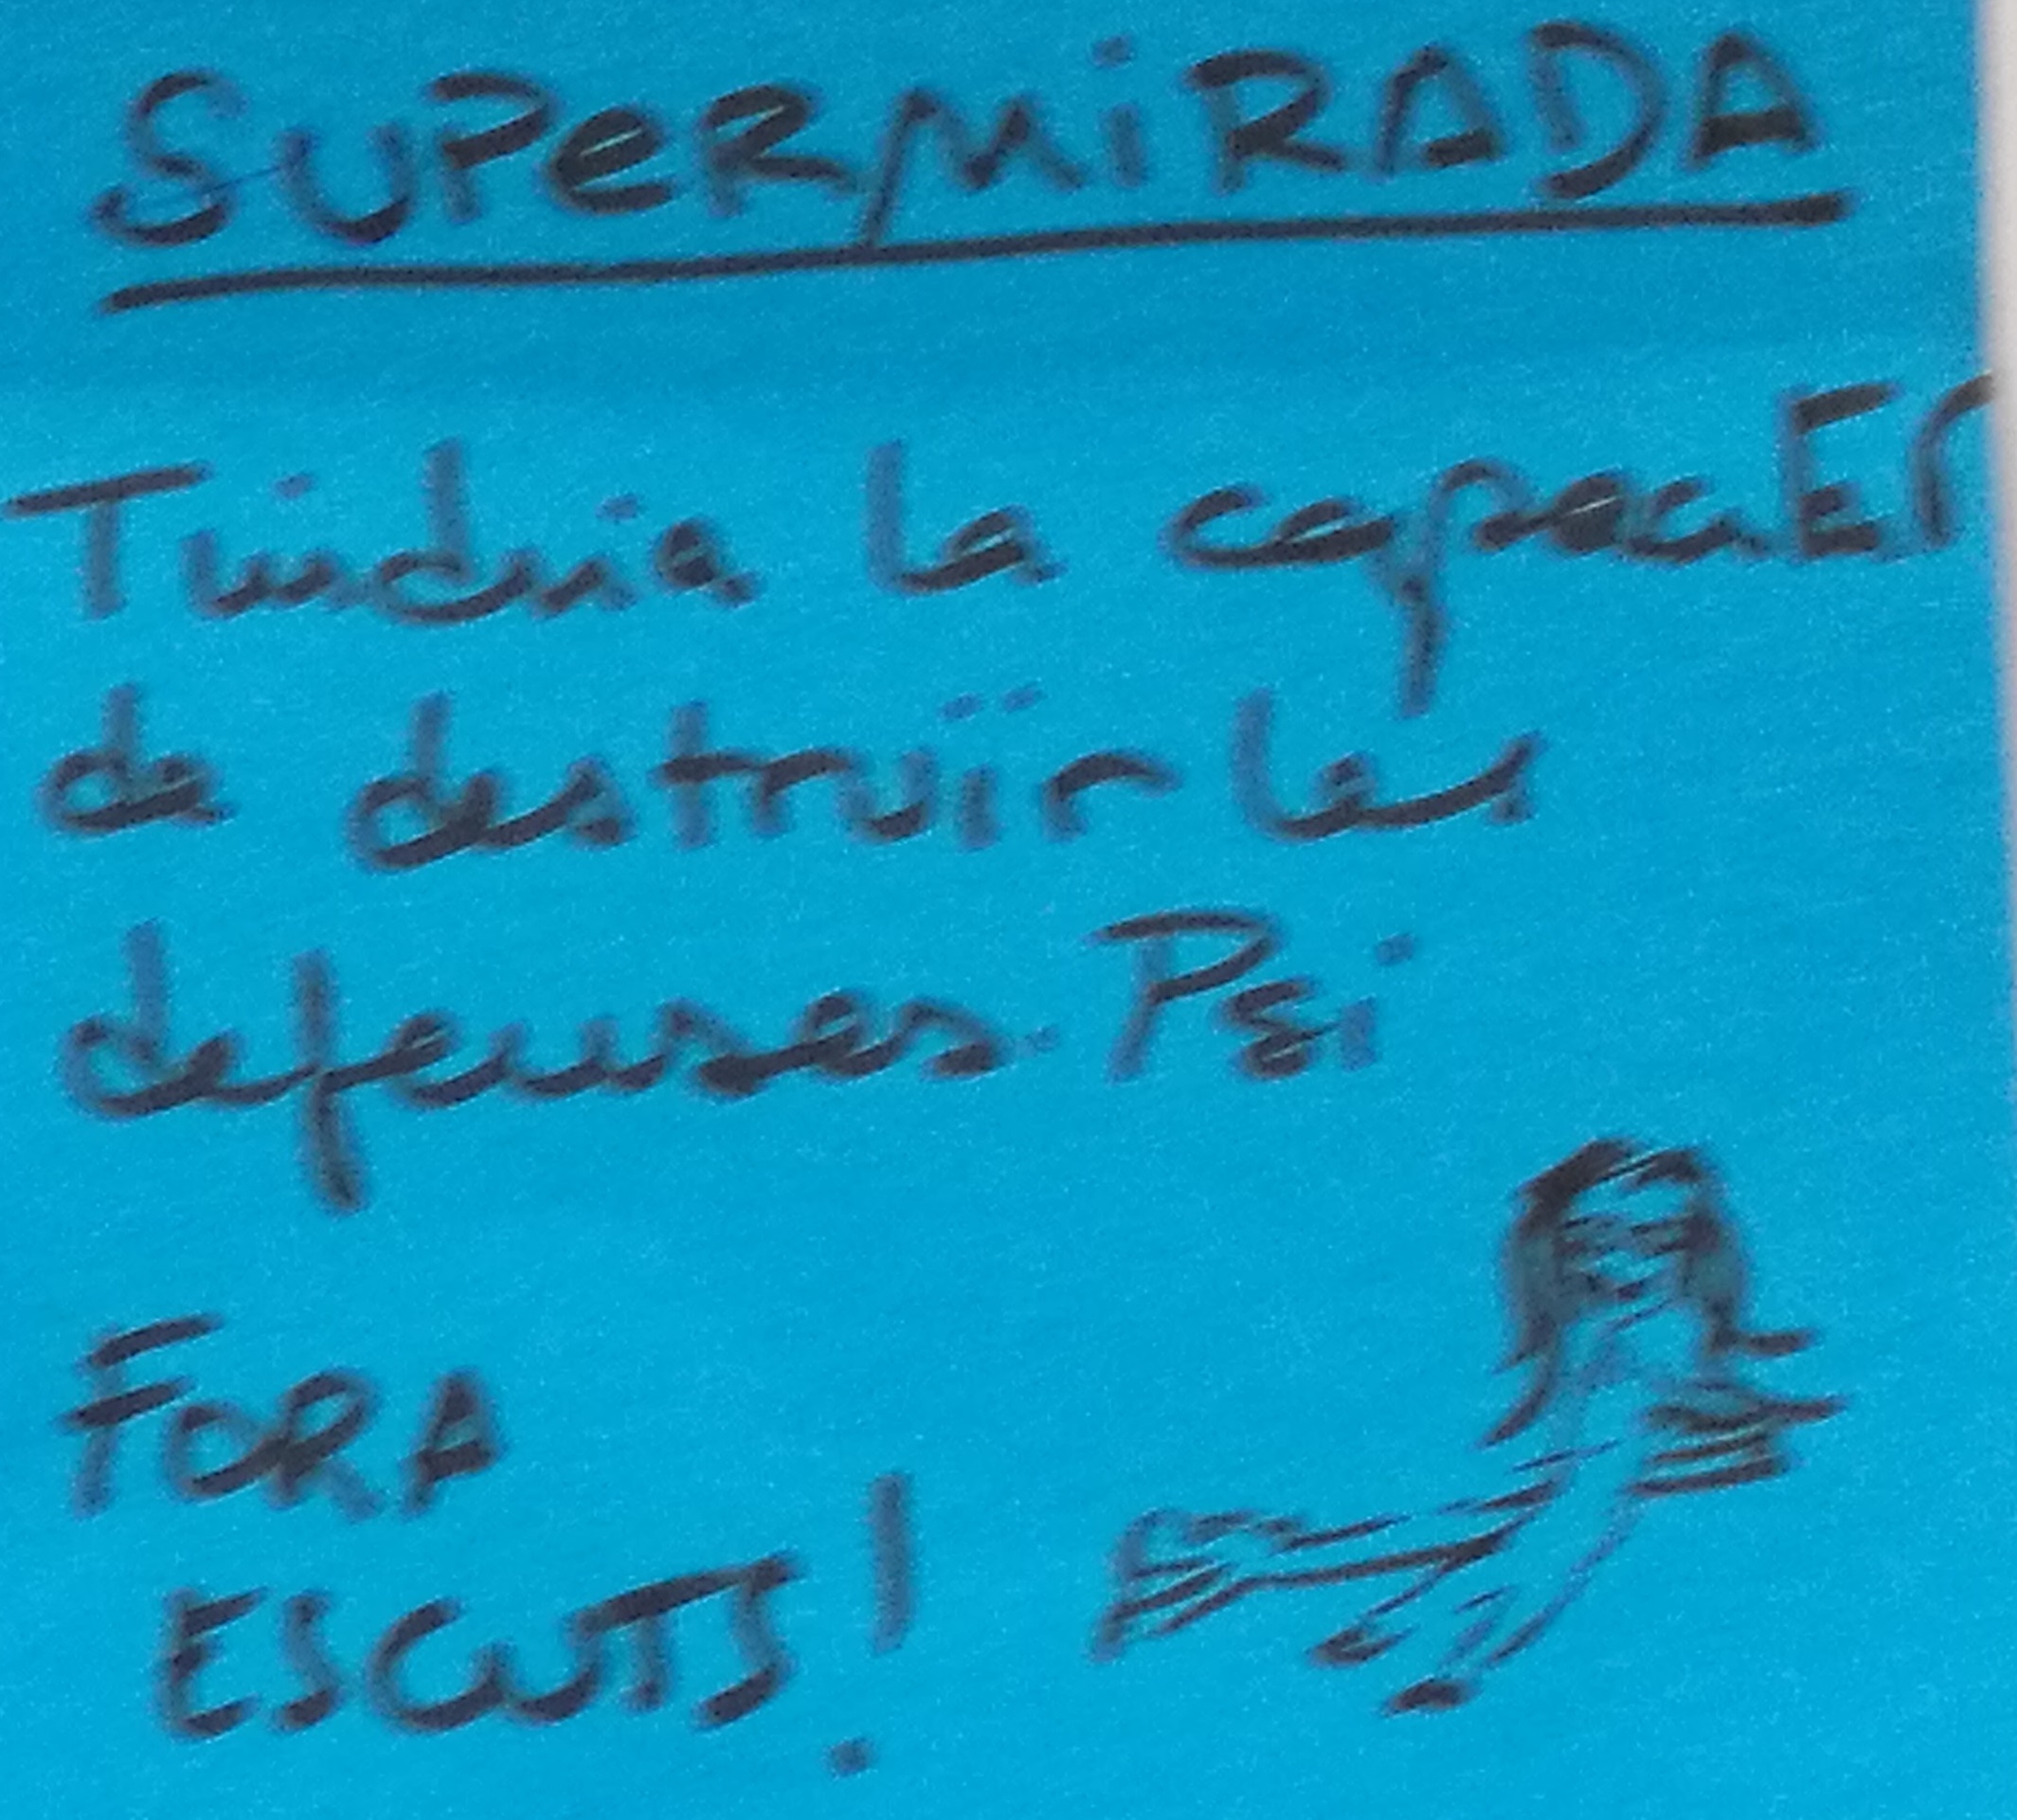 SUPERMIRADA
Tindria la
de destruir les
defenses Psi
FORA
ESCUTS!